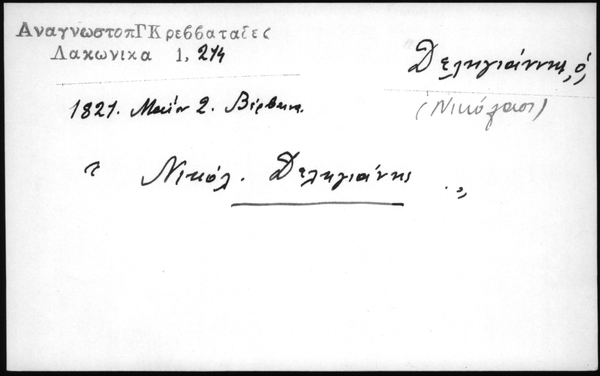 ΑναγνωστοπΓΚρεββαταῖες
Λακωνικα 1, 214
Δεληγιάννης, ὁ,
(Νικόλαος)
1821. Μαΐου 2. Βέρβαινα.
« Νικόλ. Δεληγιάνης . »